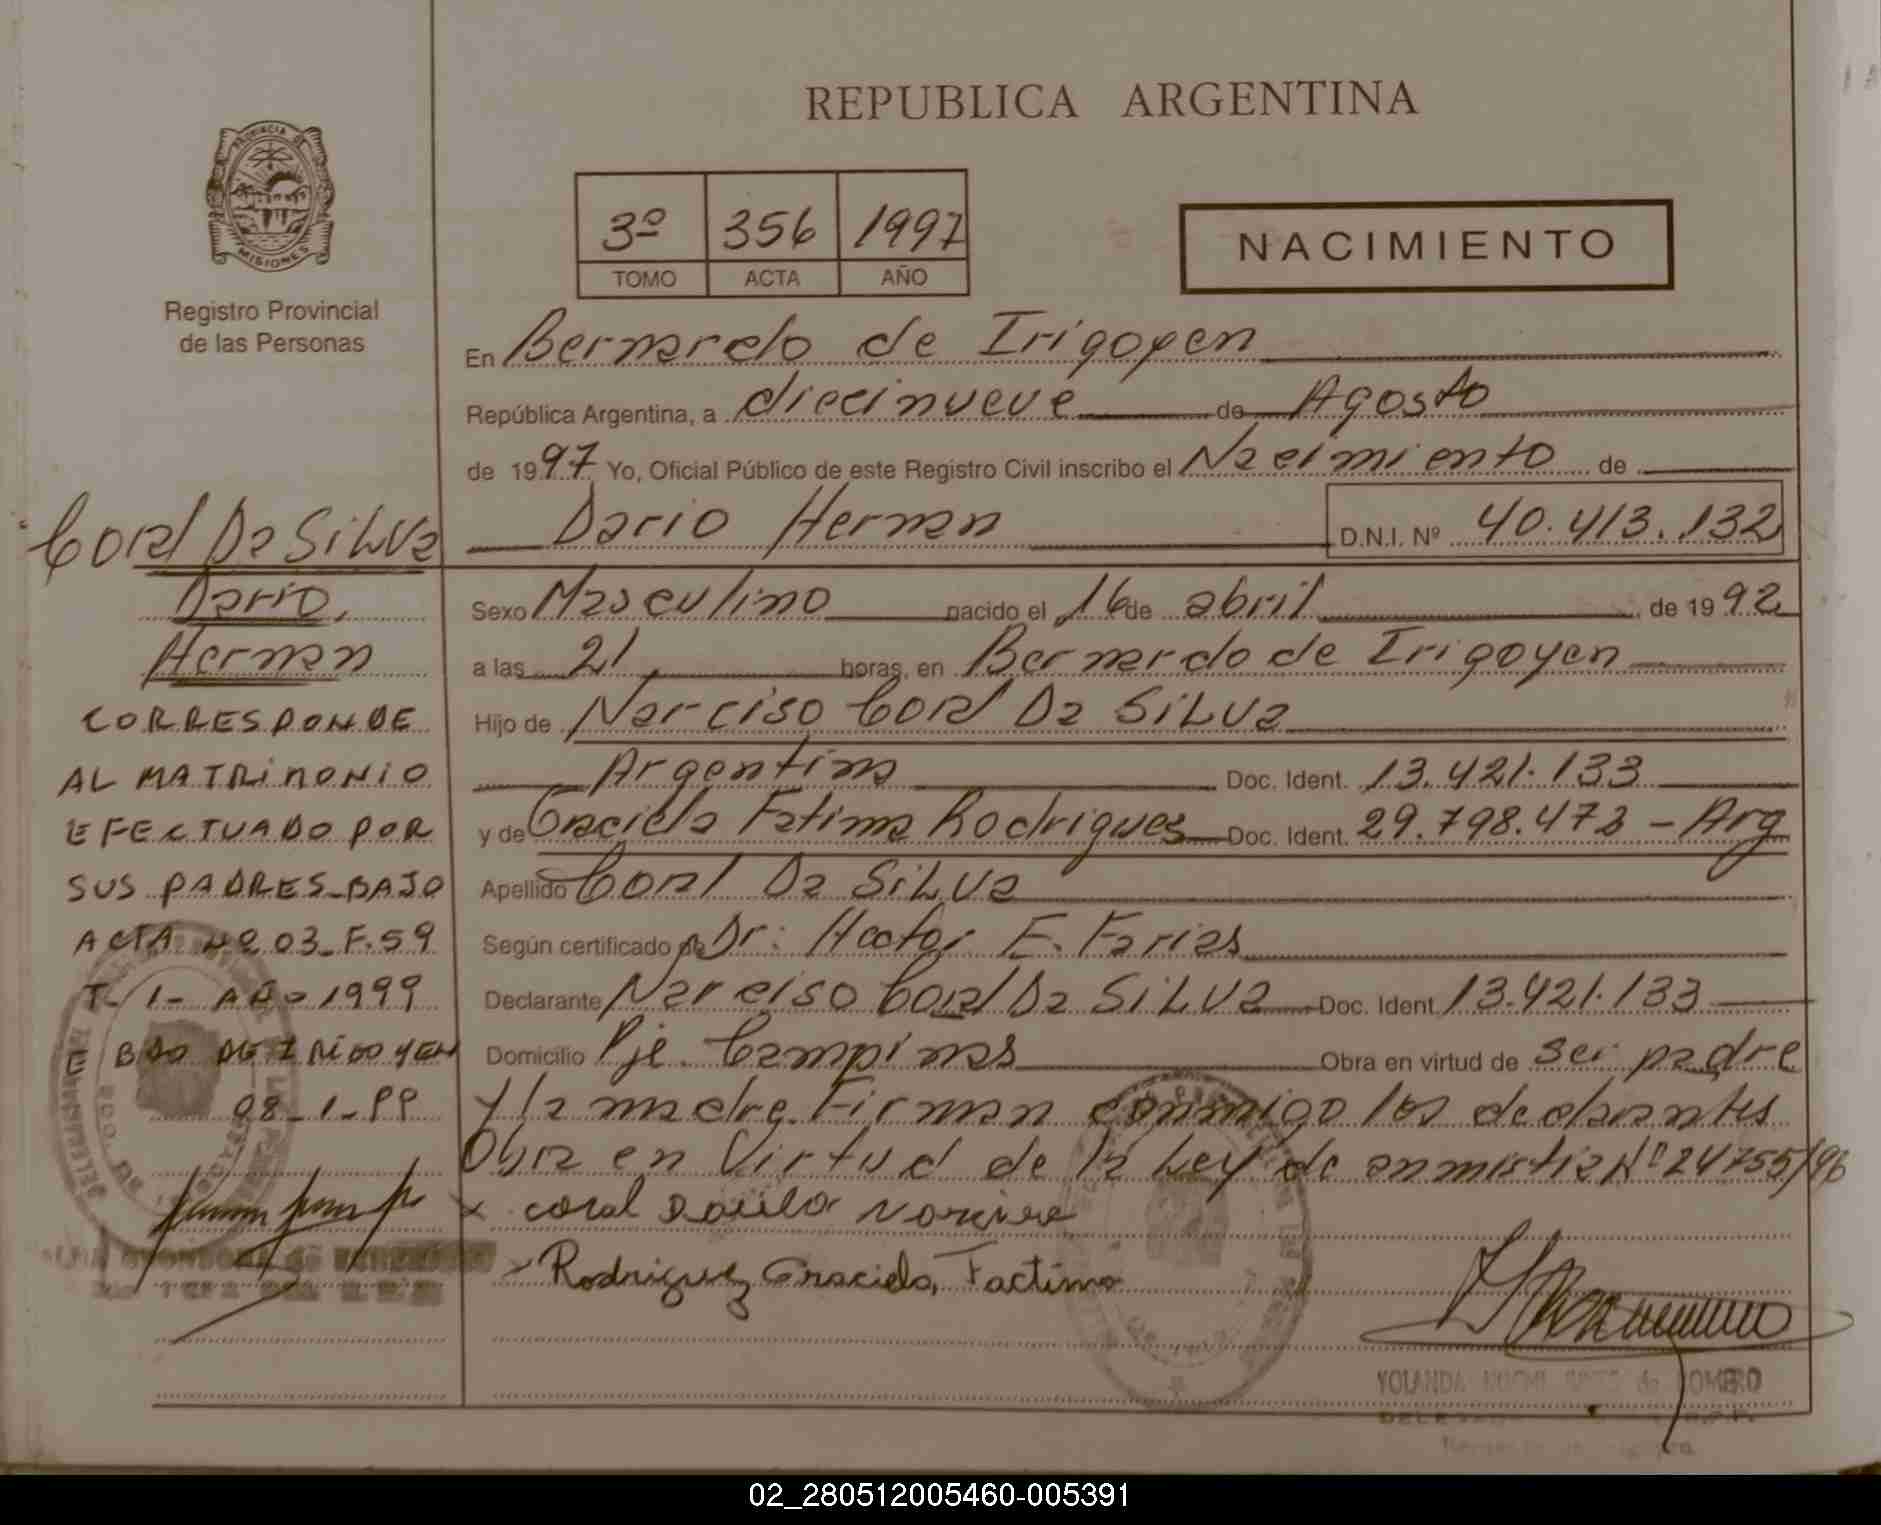 REPUBLICA ARGENTINA
PROVINCIA DE
MISIONES
Registro Provincial
de las Personas
3º 356 1997
TOMO ACTA AÑO
NACIMIENTO
En Bernardo de Irigoyen
República Argentina, a diecinueve de Agosto
de 1997 Yo, Oficial Público de este Registro Civil inscribo el Nacimiento de
Dario Hernan D.N.I. Nº 40.413.132
Sexo Masculino nacido el 16 de abril de 1992
a las 21 horas, en Bernardo de Irigoyen
Hijo de Narciso Coral Da SiLVa
Argentina Doc. Ident. 13.421.133
y de Graciela Fatima Rodrigues Doc. Ident. 29.798.473 - Arg
Apellido Coral Da SiLVa
Según certificado de Dr: Hector E. Farias
Declarante Narciso Coral Da SiLVa Doc. Ident. 13.421.133
Domicilio Pje. Campinas Obra en virtud de ser padre
y la madre. Firman conmigo los declarantes
Obra en Virtud de la Ley de anmistia Nº 24755/96
x coral Dasilva
Rodriguez Graciela, Factima
YOLANDA de ROMERO
Coral Da SiLVa
Dario,
Hernan
CORRESPONDE
AL MATRIMONIO
EFECTUADO POR
SUS PADRES-BAJO
ACTA Nº 03-F.59
T- 1- AÑO 1999
BDO DE IRIGOYEN
08-1-99
02_280512005460-005391